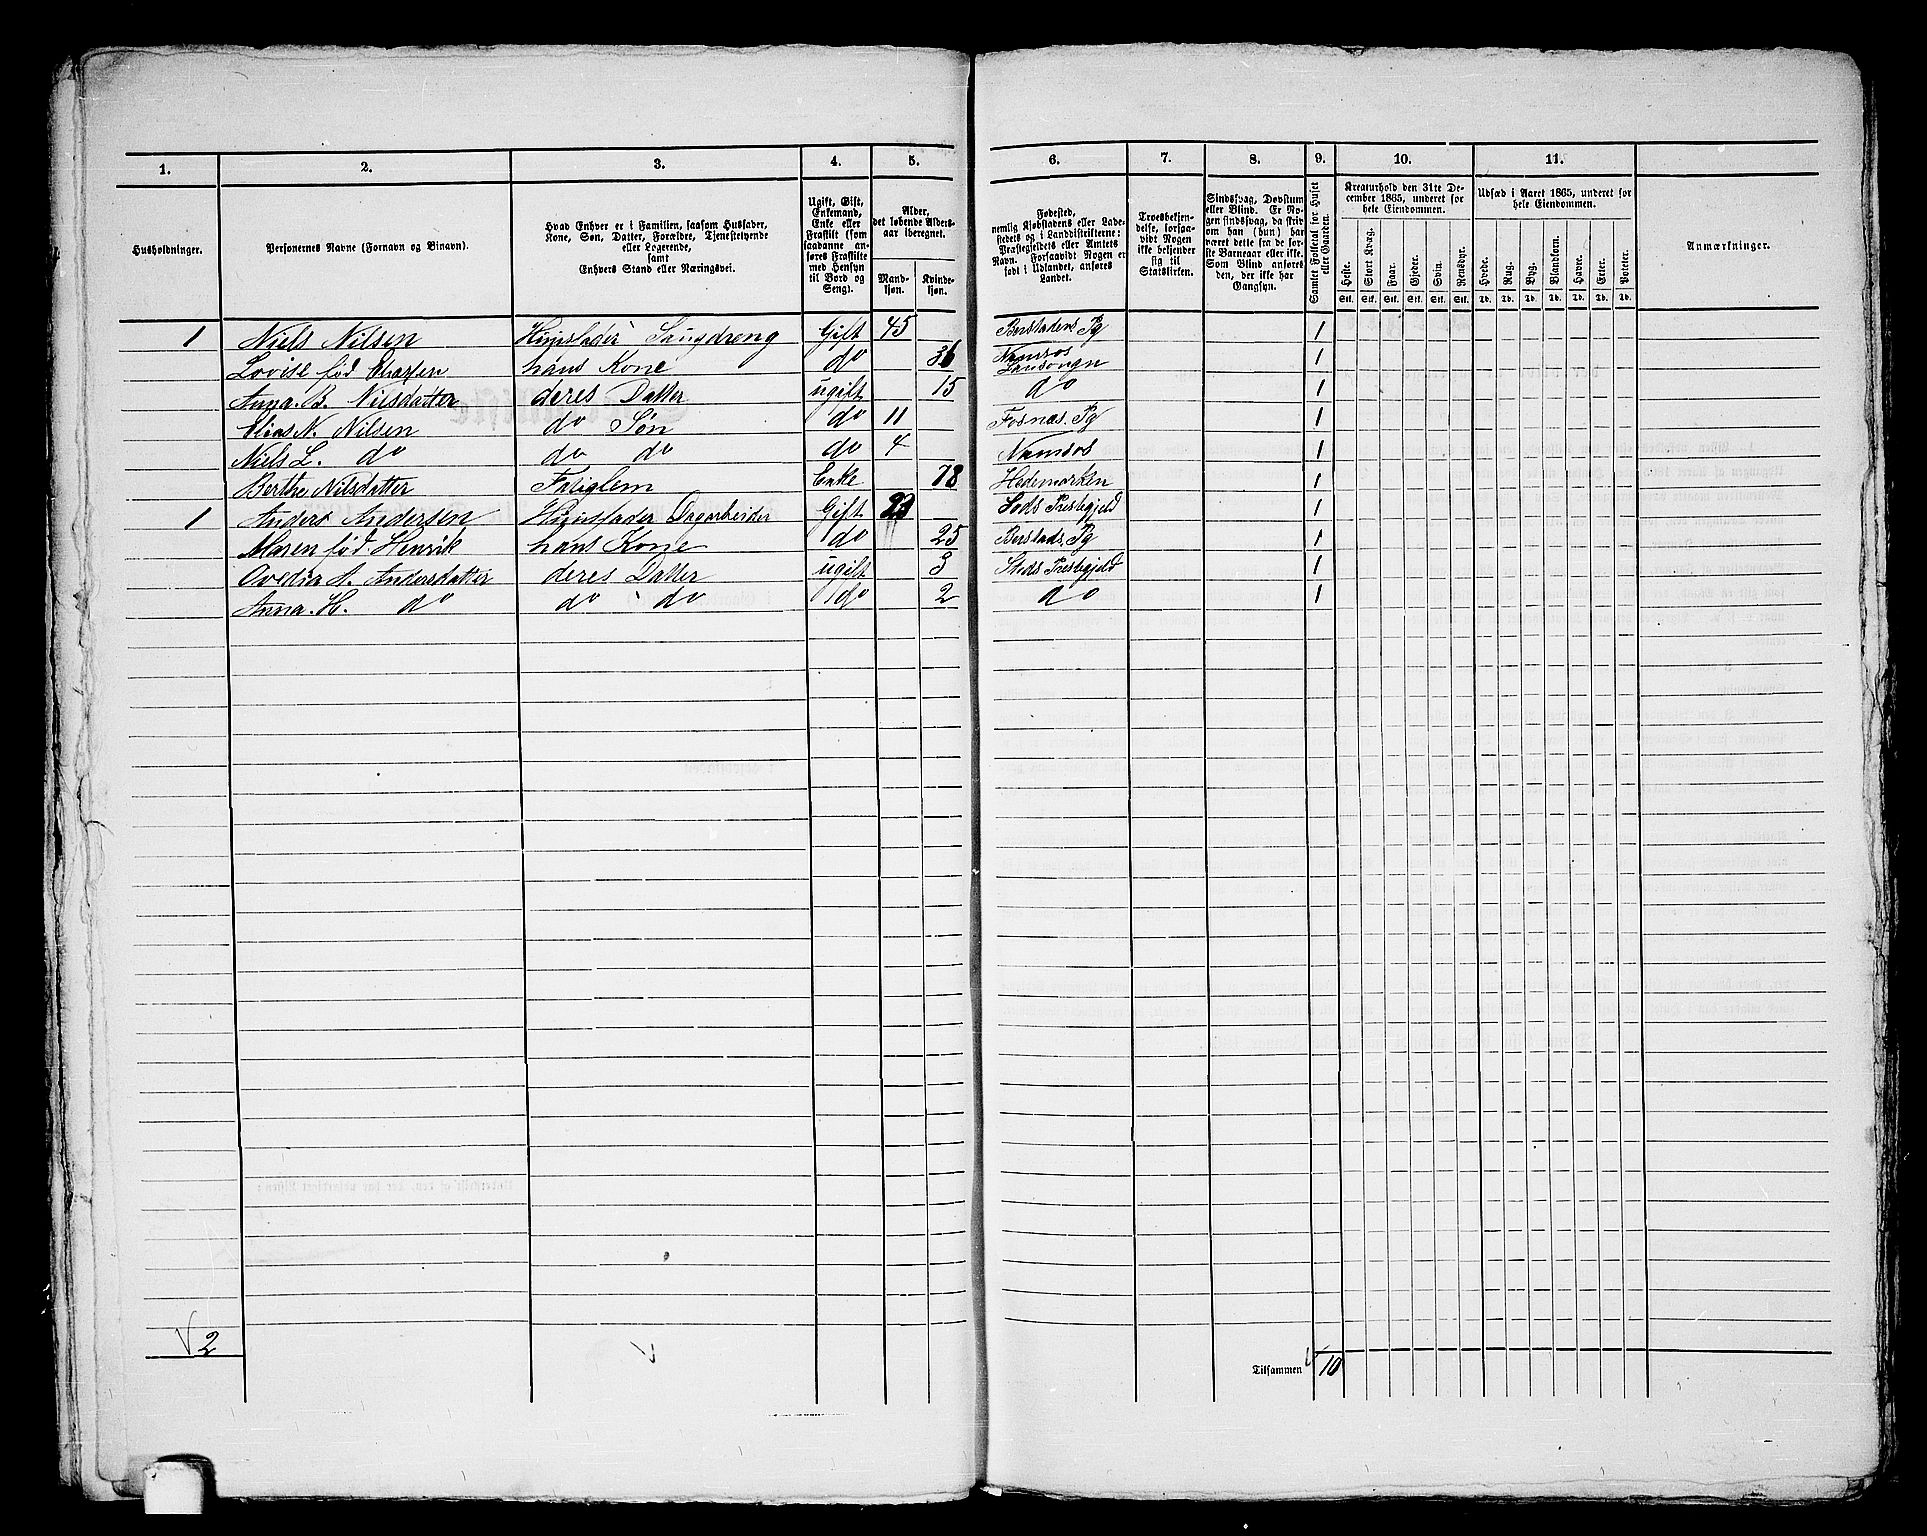 1. 2. 3. 4. 5. 6. 7. 8. 9. 10. 11.
Husholdninger.
Personernes Navne (Fornavn og Binavn).
Hvad Enhver er i Familien, saasom Husfader,
Kone, Søn, Datter, Forældre, Tjenestetyende
eller Logerende,
samt
Enhvers Stand eller Næringsvei.
Ugift, Gift,
Enkemand,
Enke eller
Fraskilte (som
saadanne an-
føres Fraskilte
med Hensyn
til Bord og
Seng).
Alder,
det løbende Alders-
aar iberegnet.
Mand-
kjøn.
Kvinde-
kjøn.
Fødested,
nemlig Kjøbstadens eller Lade-
stedets og i Landdistrikterne:
Præstegjeldets eller Amtets
Navn. Forsaavidt Nogen er
født i Udlandet, anføres
Landet.
Troesbekjen-
delse, forsaa-
vidt Nogen
ikke bekjender
sig til
Statskirken.
Sindssvag, Døvstum
eller Blind. Er No-
gen sindssvag, da skriv
om han (hun) har
været dette fra de før-
ste Barneaar eller ikke.
Som Blind anføres
den, der ikke har
Gangsyn.
Samlet Folketal for Huset
eller Gaarden.
Kreaturhold den 31te De-
cember 1865, underet for
hele Eiendommen.
Heste. Stort Kvæg. Faar. Gjeder. Svin. Rensdyr.
Stk. Stk. Stk. Stk. Stk. Stk.
Udsæd i Aaret 1865, underet for
hele Eiendommen.
Hvede. Rug. Byg. Blandkorn. Havre. Erter. Poteter.
Td. Td. Td. Td. Td. Td. Td.
Anmærkninger.
1 Niels Nilsen Huusfader Gift 45 Pg 1
Lovise fød hans Kone do 36 Namsos 1
Anna. B. Nilsdatter deres Datter ugift 15 do 1
Elias N. Nilsen do Søn do 11 Fosnas. Pg 1
Niels L. do do do do 4 Namsos 1
Berthe Nilsdatter Enke 78 Hedemarken 1
1 Anders Andersen Huusfader Dagarbeider Gift 29 1
Maren fød. Henrik hans Kone do 25 Pg 1
Ovedia A. Andersdatter deres Datter ugift 3 Steds 1
Anna. H. do do do do 2 do 1
2
Tilsammen 10